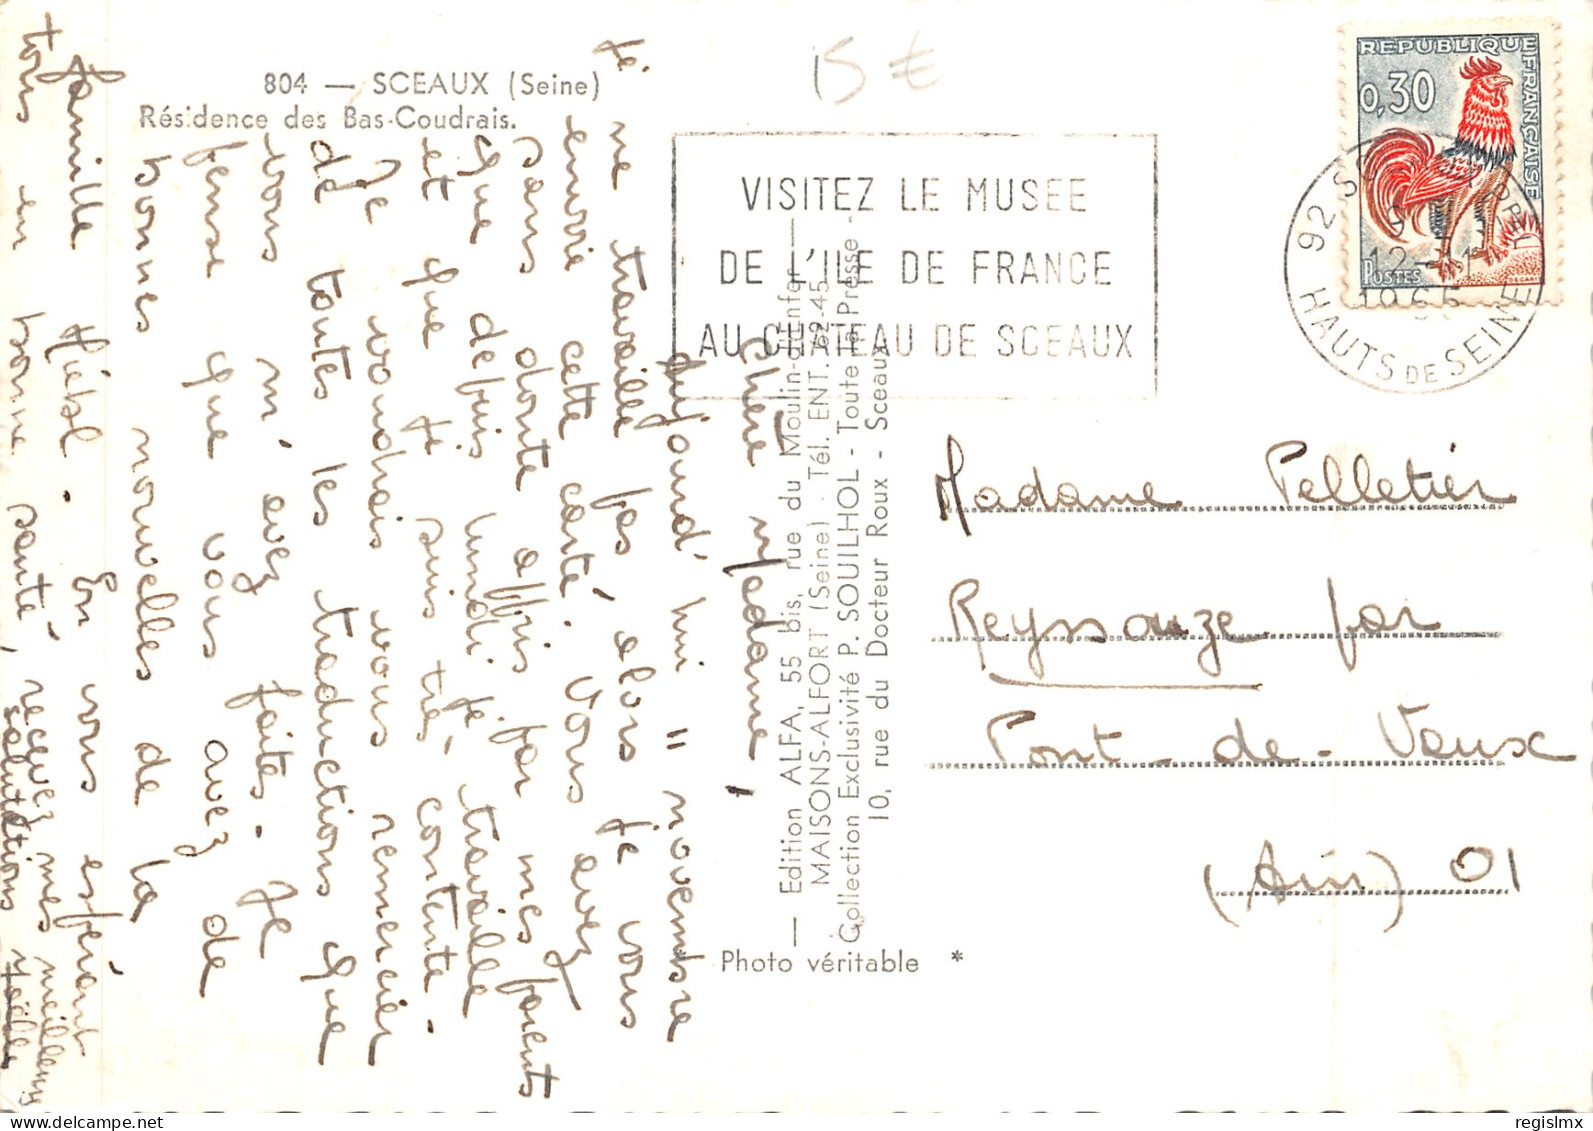 804 — SCEAUX (Seine)
Résidence des Bas-Coudrais.
15 €
REPUBLIQUE FRANÇAISE
0,30
POSTES
DECARIS
VISITEZ LE MUSEE
DE L'ILE DE FRANCE
AU CHATEAU DE SCEAUX
92 SCEAUX PPAL
12-11
1965
HAUTS DE SEINE
Chère Madame,
aujourd'hui 11 novembre
je ne travaille pas alors je vous
envoie cette carte. Vous avez
sans doute appris par mes parents
que depuis lundi je travaille
et que je suis très contente.
Je voudrais vous remercier
de toutes les traductions que
vous m'avez faites. Je
pense que vous avez de
bonnes nouvelles de la
famille Hiebl. En vous espérant
tous en bonne santé, recevez mes meilleures
salutations
— Edition ALFA, 55 bis, rue du Moulin-d'Enfer —
MAISONS-ALFORT (Seine) - Tél. ENT. 62-45
Collection Exclusivité P. SOUILHOL - Toute la Presse
10, rue du Docteur Roux - Sceaux
* Photo véritable *
Madame Pelletier
Reyssouze par
Pont-de-Vaux
(Ain) 01
regislmx